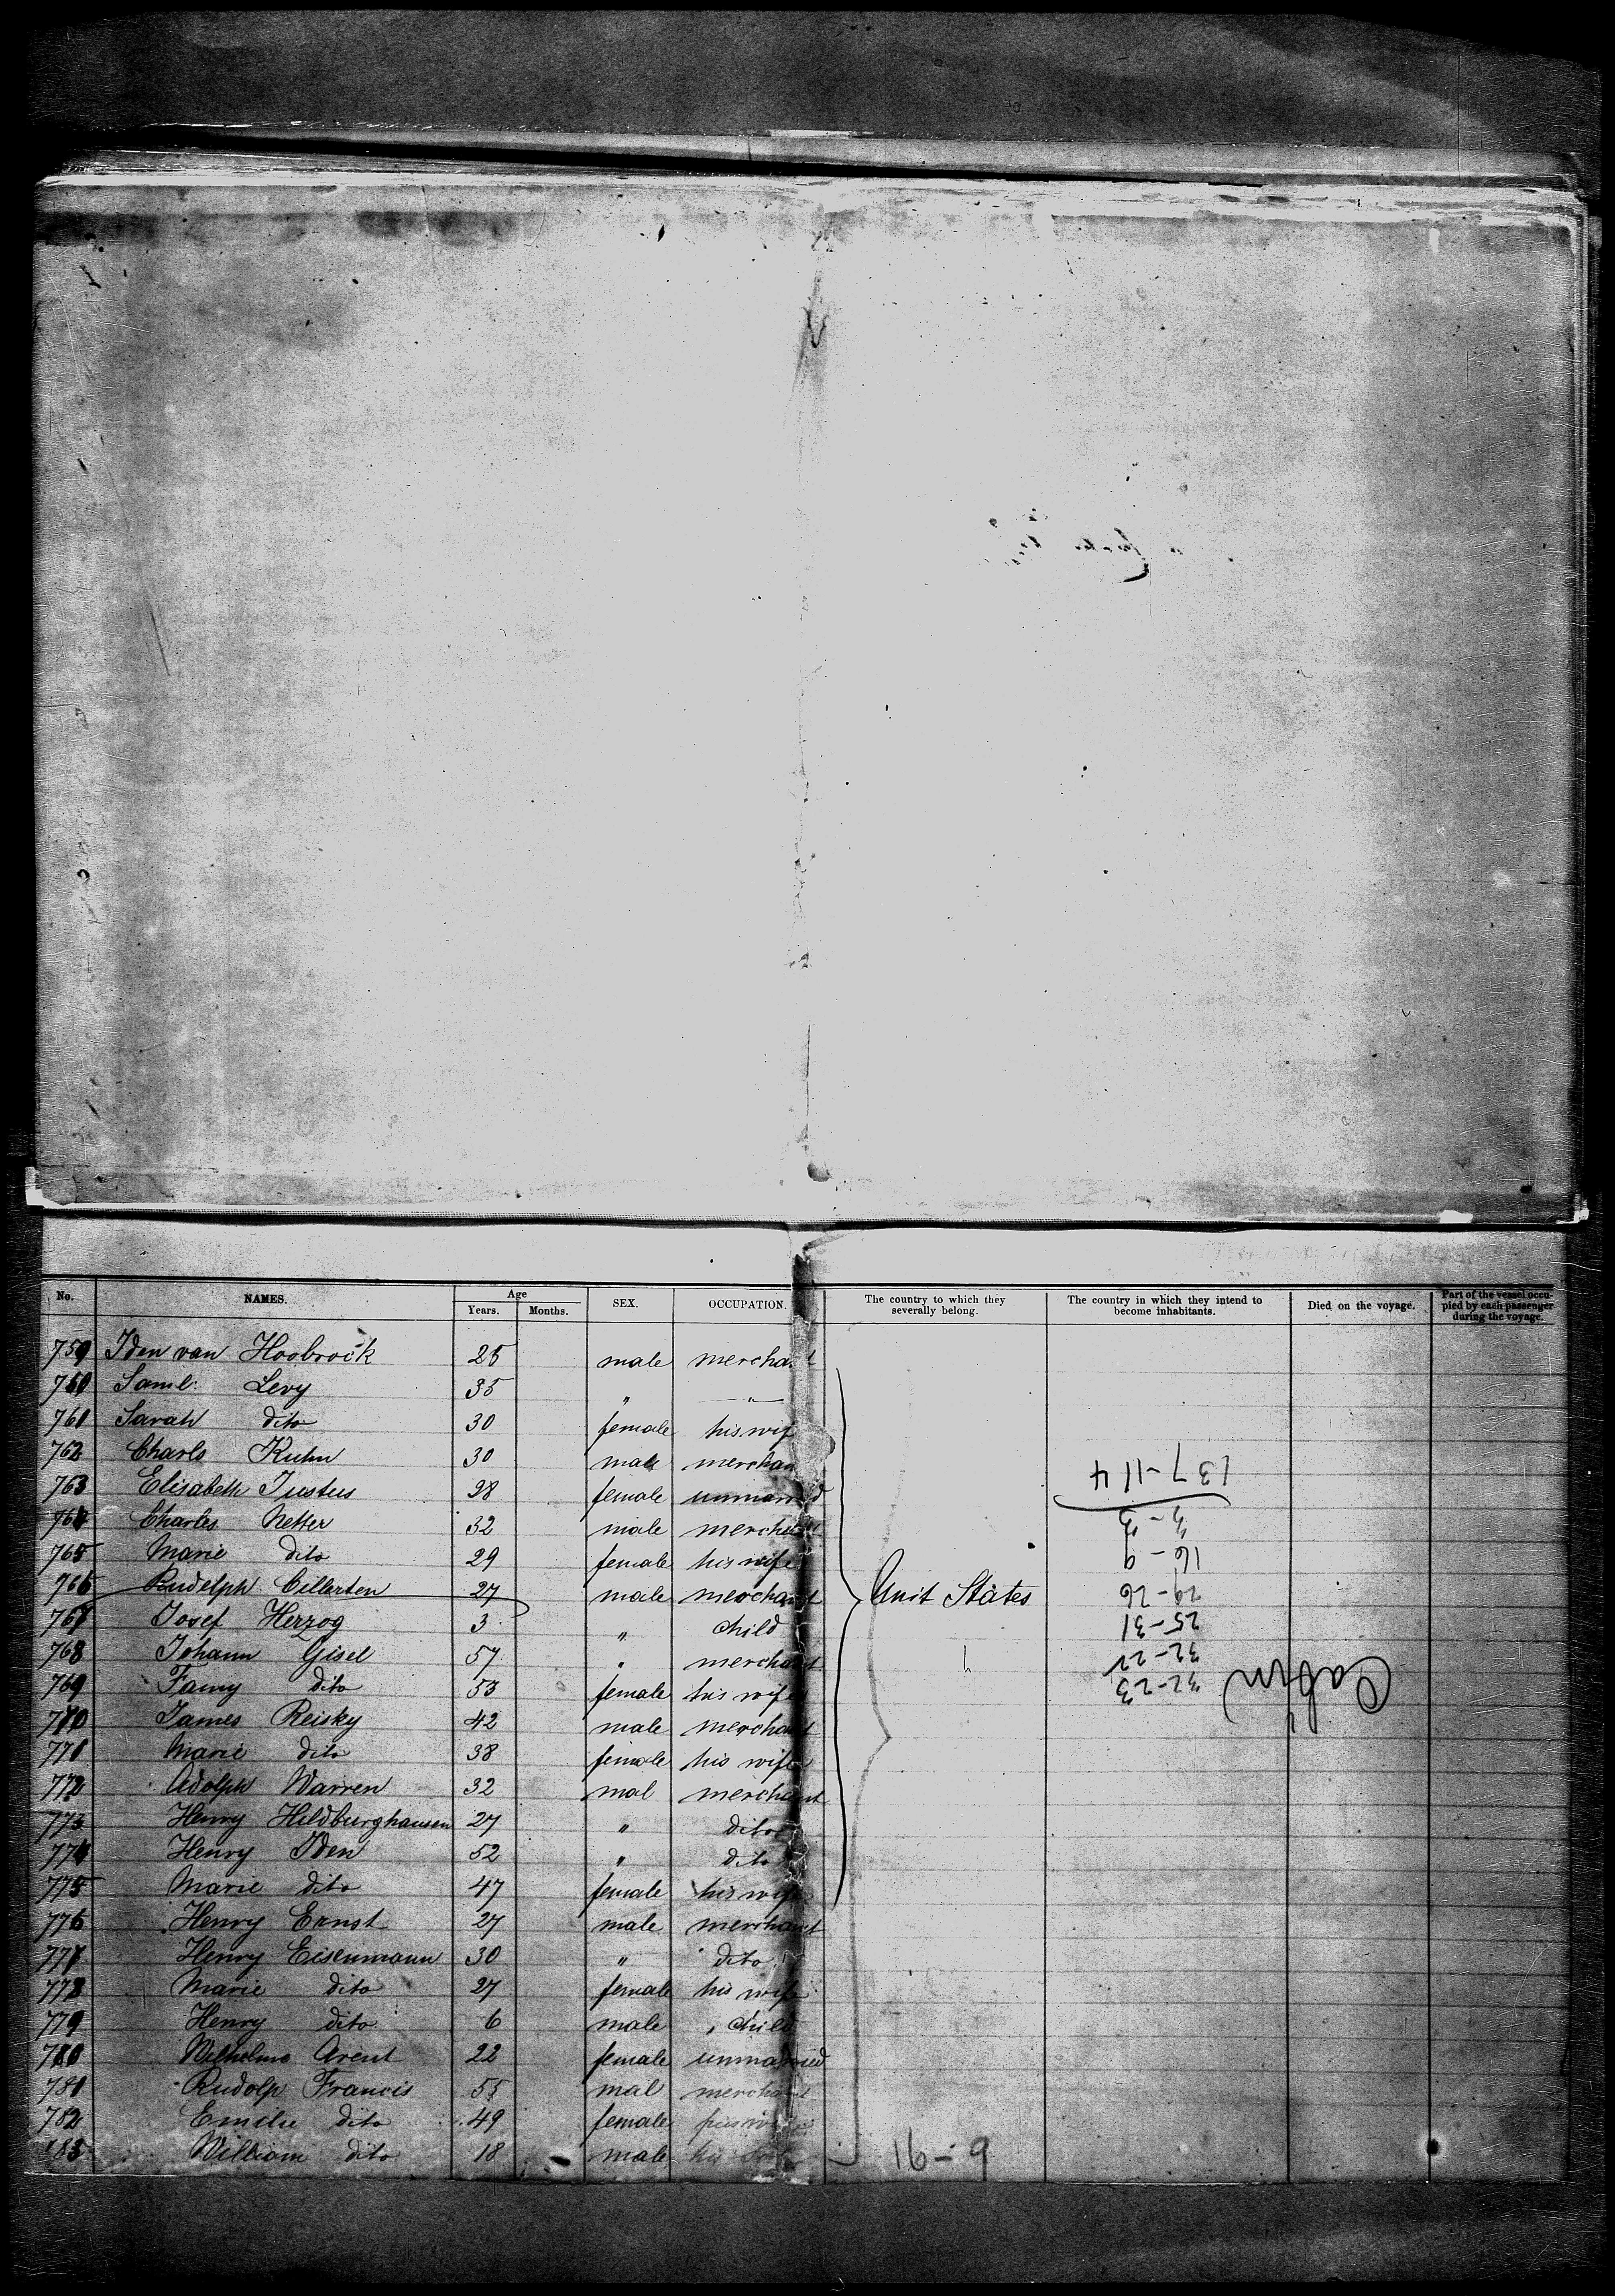 No. NAMES. Age Years. Months. SEX. OCCUPATION. The country to which they severally belong. The country in which they intend to become inhabitants. Died on the voyage. Part of the vessel occupied by each passenger during the voyage.
759 Iden van Hoobrock 25 male merchant
760 Saml. Levy 35 " "
761 Sarah dito 30 female his wife
762 Charls Kuhn 30 male merchan
763 Elisabeth Justus 28 female unmarried
764 Charles Netter 32 male merchant
765 Marie dito 29 female his wife
766 Rudolph Cillarten 27 male merchant Unit States
767 Josef Herzog 3 " child
768 Johann Gisel 57 " merchant
769 Fanny dito 53 female his wife
770 James Reisky 42 male merchant
771 Marie dito 38 female his wife
772 Adolph Warren 32 mal merchant
773 Henry Hildburghausen 27 " dito
774 Henry Iden 52 " dito
775 Marie dito 47 female his wife
776 Henry Ernst 27 male merchant
777 Henry Eisenmann 30 " dito
778 Marie dito 27 female his wife
779 Henry dito 6 male child
780 Wilhelms Arent 22 female unmarried
781 Rudolp Francis 55 mal merchant
782 Emilie dito 49 female his wife
783 William dito 18 male his
16-9
Cabin
32-23
32-22
25-31
29-26
16-9
3-3
137-114